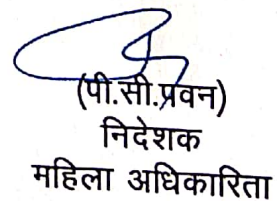 (पी.सी.प्रवन)
निदेशक
महिला अधिकारिता